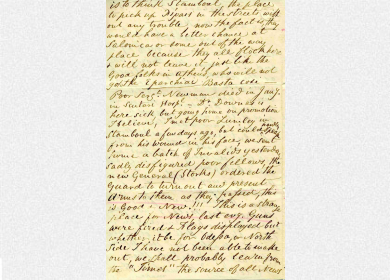 is to think Stamboul, the place
to pick up Digars in the streets with
out any trouble, now the fact is they
would have a better chance at
Salonica or some out of the way
place because they all flock here
& will not leave it, just like the
Good folks in Athens, who will not
go to Eparchia. Basta cosi.
Poor Serjt. Newman died in Jany.
in Scutari Hospl. — Dr. Downes is
here sick but going home on promotion
I believe, I met poor Lumley in
Stamboul a few days ago, but could
from his wound in his face, we sent
home a batch of Invalids yesterday
sadly disfigured poor fellows, the
new General (Storks) ordered the
Guard to turn out and present
Arms to them as they passed, this
is Good & New!!! This is a strange
place for News, last eve Guns
were fired & Flags displayed but
whether it be for Odessa, or North
Side I have not been able to make
out, we shall probably learn from
the "Times" the source of all News